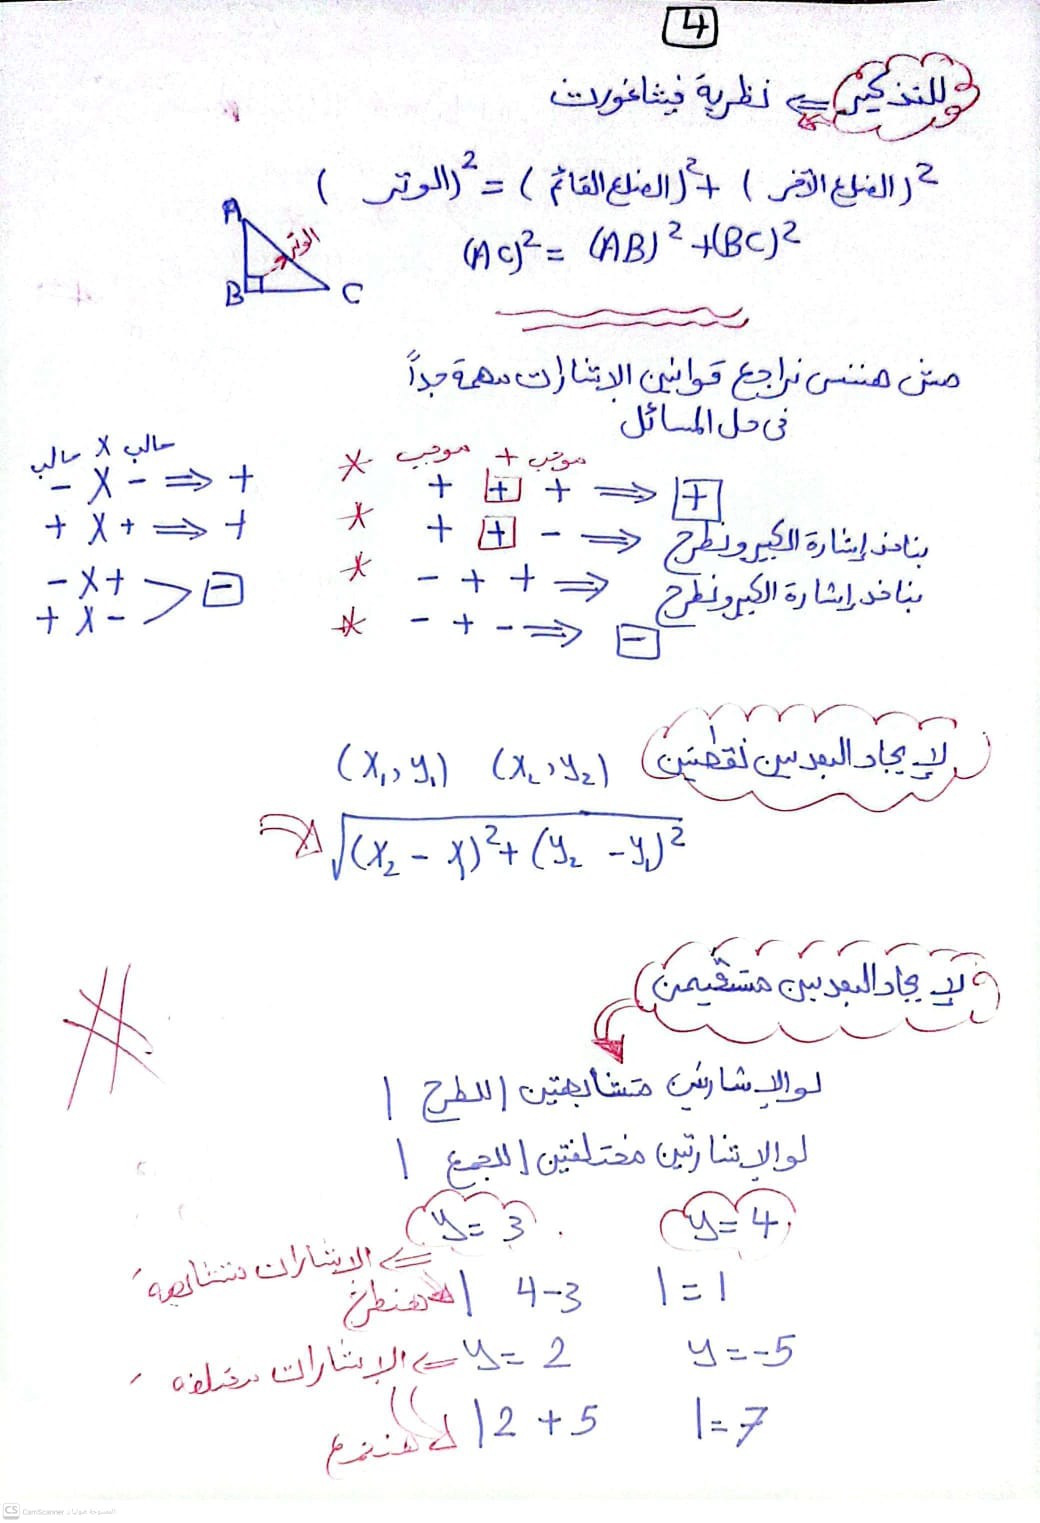 4
للتذكير ⇐ نظرية فيثاغورث
(الوتر)² = (الضلع القائم)² + (الضلع الآخر)²
(AC)² = (AB)² + (BC)²
A
الوتر
B
C
مش هننسى نراجع قوانين الإشارات مهمة جداً
فى حل المسائل
سالب X سالب
- X - ⇒ +
+ X + ⇒ +
- X +
+ X -
-
موجب + موجب
* + + + ⇒ +
* + + - ⇒ بناخد إشارة الكبير ونطرح
* - + + ⇒ بناخد إشارة الكبير ونطرح
* - + - ⇒ -
لإيجاد البعد بين نقطتين
(x₁, y₁) (x₂, y₂)
√(x₂ - x)² + (y₂ - y₁)²
لإيجاد البعد بين مستقيمن
لو الإشارتين متشابهتين | للطرح |
لو الإشارتين مختلفتين | للجمع |
y = 3 . y = 4
الاشارات متشابهة ⇐
هنطرح
| 4-3 | = 1
y = 2 y = -5
الإشارات مختلفة ⇐
| 2 + 5 | = 7
هنجمع
CS CamScanner